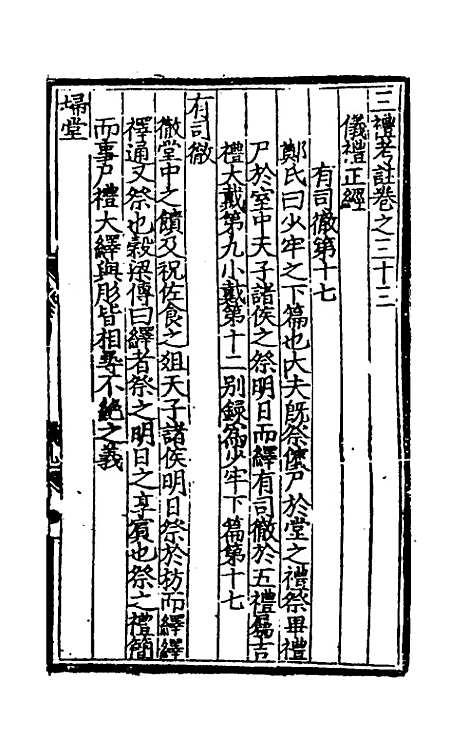 三禮考註卷之三十三
儀禮正經
有司徹第十七
鄭氏曰少牢之下篇也大夫旣祭儐尸於堂之禮祭畢禮
尸於室中天子諸侯之祭明日而繹有司徹於五禮屬吉
禮大戴第九小戴第十二別録爲少牢下篇第十七
有司徹
徹堂中之饋及祝佐食之俎天子諸侯明日祭於祊而繹繹
釋通又祭也穀梁傳曰繹者祭之明日之享賓也祭之禮簡
而事尸禮大繹與肜皆相尋不絶之義
埽堂